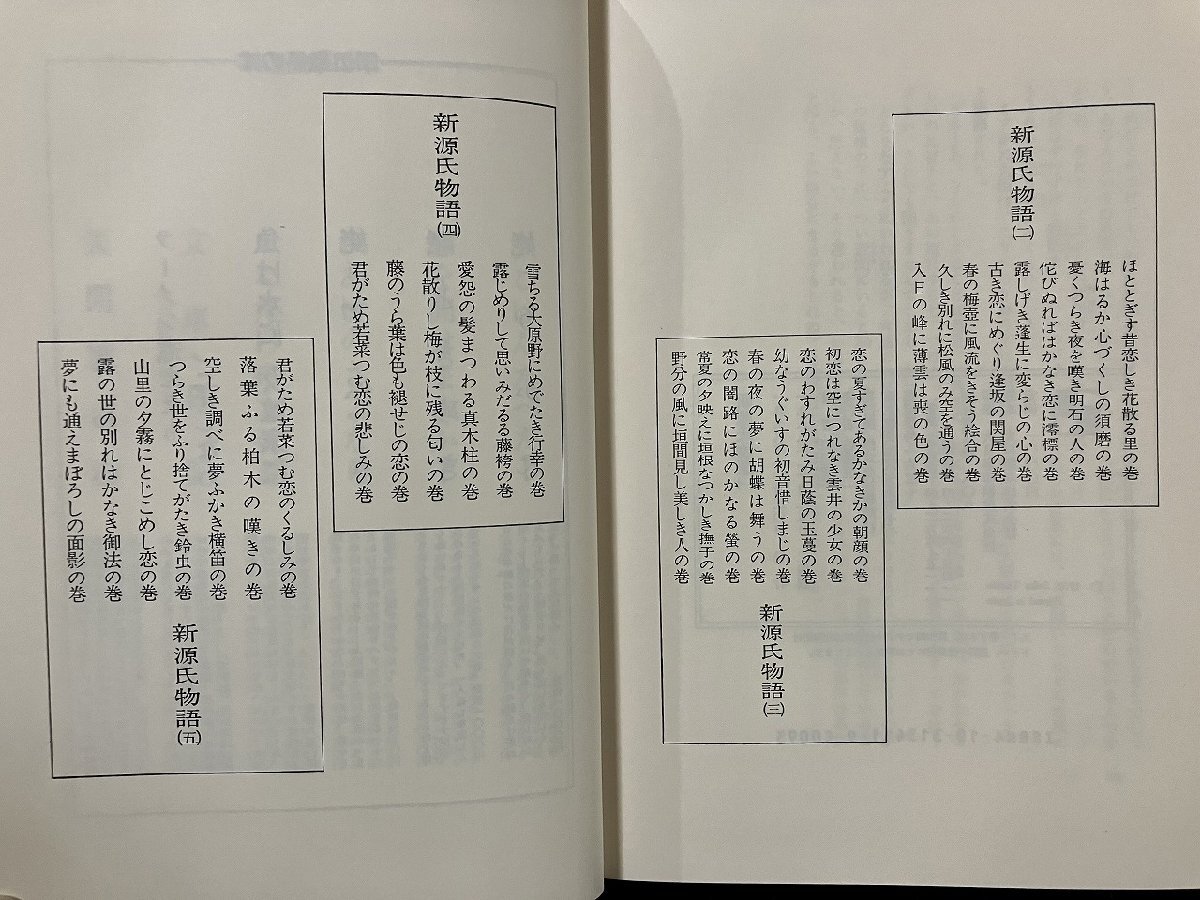 新源氏物語(二)
ほととぎす昔恋しき花散る里の巻
海はるか心づくしの須磨の巻
憂くつらき夜を嘆き明石の人の巻
侘びぬればはかなき恋に澪標の巻
露しげき蓬生に変らじの心の巻
古き恋にめぐり逢坂の関屋の巻
春の梅壺に風流をきそう絵合の巻
久しき別れに松風のみ空を通うの巻
入日の峰に薄雲は喪の色の巻
恋の夏すぎてあるかなきかの朝顔の巻
初恋は空につれなき雲井の少女の巻
恋のわすれがたみ日蔭の玉蔓の巻
幼なうぐいすの初音惜しまじの巻
春の夜の夢に胡蝶は舞うの巻
恋の闇路にほのかなる螢の巻
常夏の夕映えに垣根なつかしき撫子の巻
野分の風に垣間見し美しき人の巻
新源氏物語(三)
新源氏物語(四)
雪ちる大原野にめでたき行幸の巻
露じめりして思いみだるる藤袴の巻
愛怨の髪まつわる真木柱の巻
花散りし梅が枝に残る匂いの巻
藤のうら葉は色も褪せじの恋の巻
君がため若菜つむ恋の悲しみの巻
君がため若菜つむ恋のくるしみの巻
落葉ふる柏木の嘆きの巻
空しき調べに夢ふかき横笛の巻
つらき世をふり捨てがたき鈴虫の巻
山里の夕霧にとじこめし恋の巻
露の世の別れはかなき御法の巻
夢にも通えまぼろしの面影の巻
新源氏物語(五)